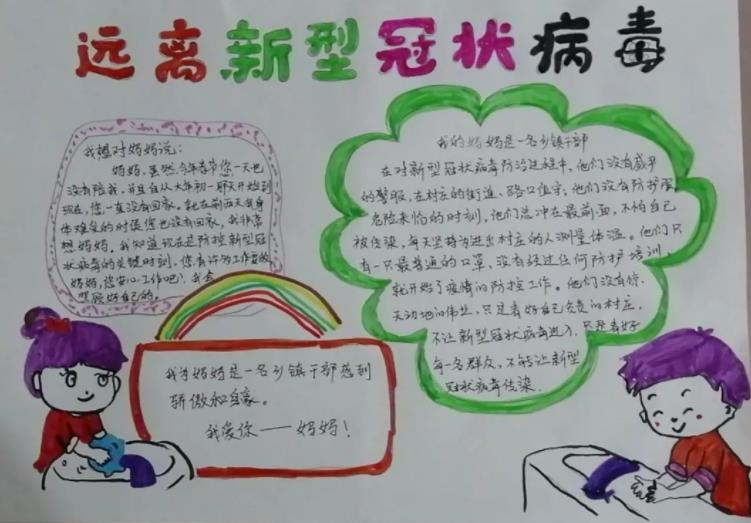 远离新型冠状病毒
我想对妈妈说:
妈妈,虽然今年春节您一天也
没有陪我,并且自从大年初一那天开始到
现在,您一直没有回家。就在前两天我身
体难受的时候您也没有回家,我非常
想妈妈,我知道现在是防控新型冠
状病毒的关键时刻,您有许多工作要做,
妈妈,您安心工作吧!我会
照顾好自己的。
我的妈妈是一名乡镇干部
在对新型冠状病毒防治过程中,他们没有威严
的警服,在村庄的街道、路口值守;他们没有防护服
危险来临的时刻,他们总冲在最前面,不怕自己
被传染,每天坚持为进出村庄的人测量体温。他们只
有一只最普通的口罩,没有经过任何防护培训,
就开始了疫情的防控工作。他们没有惊
天动地的伟业,只是看好自己负责的村庄,
不让新型冠状病毒进入,只是看好
每一名群众,不能让新型
冠状病毒传染.
我为妈妈是一名乡镇干部感到
骄傲和自豪。
我爱你——妈妈!